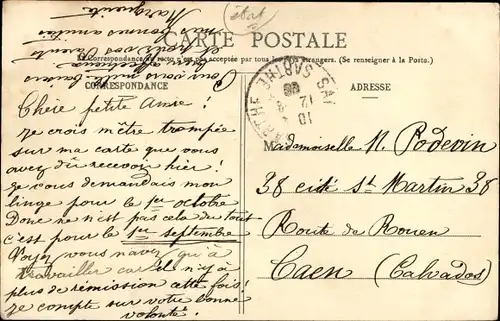 (état)
CARTE POSTALE
La Correspondance au recto n'est pas acceptée par tous les pays étrangers. (Se renseigner à la Poste.)
CORRESPONDANCE
ADRESSE
Chère petite Amie!
Je crois m'être trompée
sur ma carte que vous
avez dû recevoir hier!
Je vous demandais mon
linge pour le 1er octobre
Donc ne n'est pas cela du tout
c'est pour le 1er septembre
Voyez vous n'avez qu'à
travailler car il n'y a
plus de rémission cette fois!
Je compte sur votre bonne
volonté!
mille baisers
bonnes amitiés
Marguerite
SARTHE
Mademoiselle N. Podevin
38 cité St Martin 38
Route de Rouen
Caen (Calvados)